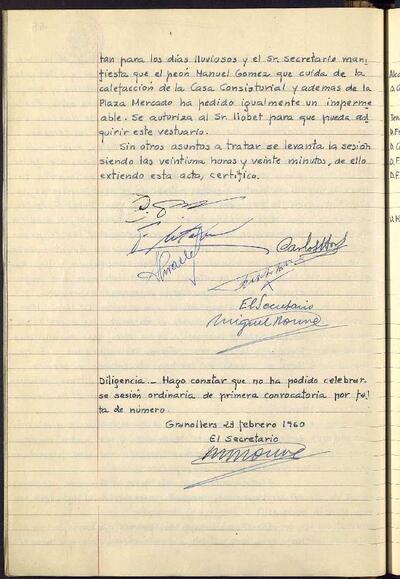 tan para los días lluviosos y el Sr. Secretario mani
fiesta que el peón Manuel Gomez que cuida de la
calefacción de la Casa Consistorial y ademas de la
Plaza Mercado ha pedido igualmente un imperme
able. Se autoriza al Sr. Llobet para que pueda ad
quirir este vestuario.
Sin otros asuntos a tratar se levanta la sesión
siendo las veintiuna horas y veinte minutos, de ello
extiendo esta acta, certifico.
El Secretario
Diligencia._ Hago constar que no ha podido celebrar
se sesión ordinaria de primera convocatoria por fal
ta de número.
Granollers 23 febrero 1960
El Secretario